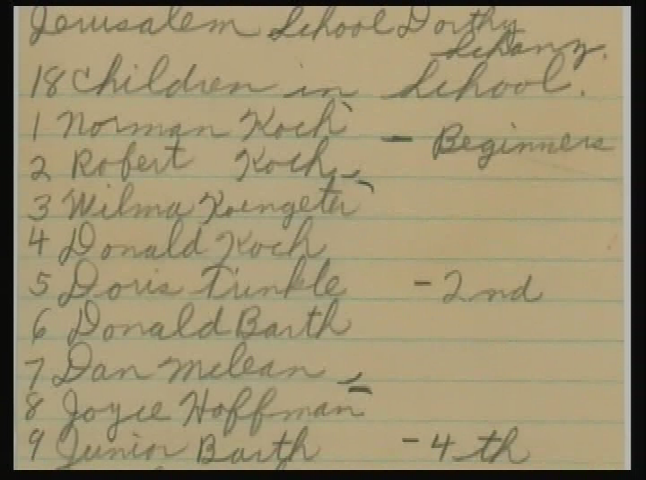 Jerusalem School Dorthy
Schanz.
18 Children in School.
1 Norman Koch
2 Robert Koch - Beginners
3 Wilma Koengeter
4 Donald Koch
5 Doris Trinkle - 2nd
6 Donald Barth
7 Dan McLean
8 Joyce Hoffman
9 Junior Barth - 4th